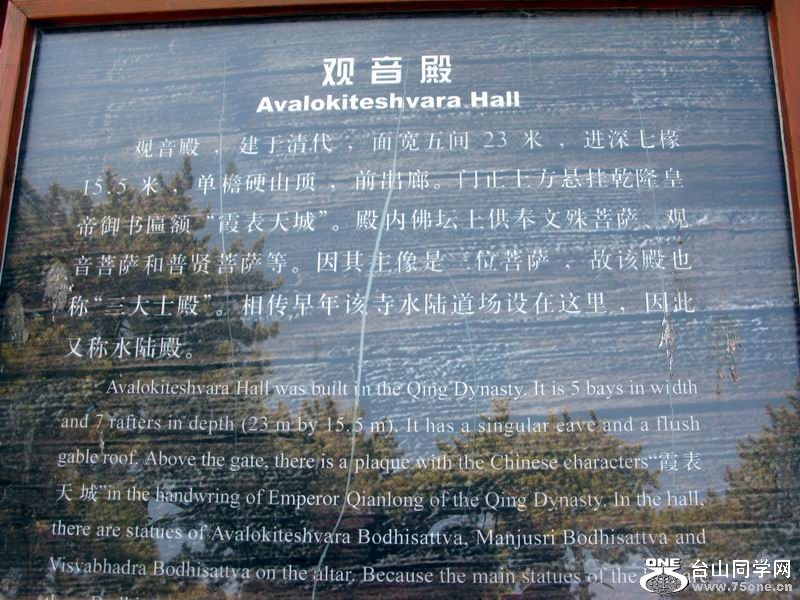 观音殿
Avalokiteshvara Hall
观音殿，建于清代，面宽五间 23 米，进深七椽
15.5 米，单檐硬山顶，前出廊。门正上方悬挂乾隆皇
帝御书匾额“霞表天城”。殿内佛坛上供奉文殊菩萨、观
音菩萨和普贤菩萨等。因其主像是三位菩萨，故该殿也
称“三大士殿”。相传早年该寺水陆道场设在这里，因此
又称水陆殿。
Avalokiteshvara Hall was built in the Qing Dynasty. It is 5 bays in width
and 7 rafters in depth (23 m by 15.5 m). It has a singular eave and a flush
gable roof. Above the gate, there is a plaque with the Chinese characters“霞表
天城”in the handwring of Emperor Qianlong of the Qing Dynasty. In the hall,
there are statues of Avalokiteshvara Bodhisattva, Manjusri Bodhisattva and
Visvabhadra Bodhisattva on the altar. Because the main statues of the
ONE
75
台山同学网
www.75one.cn